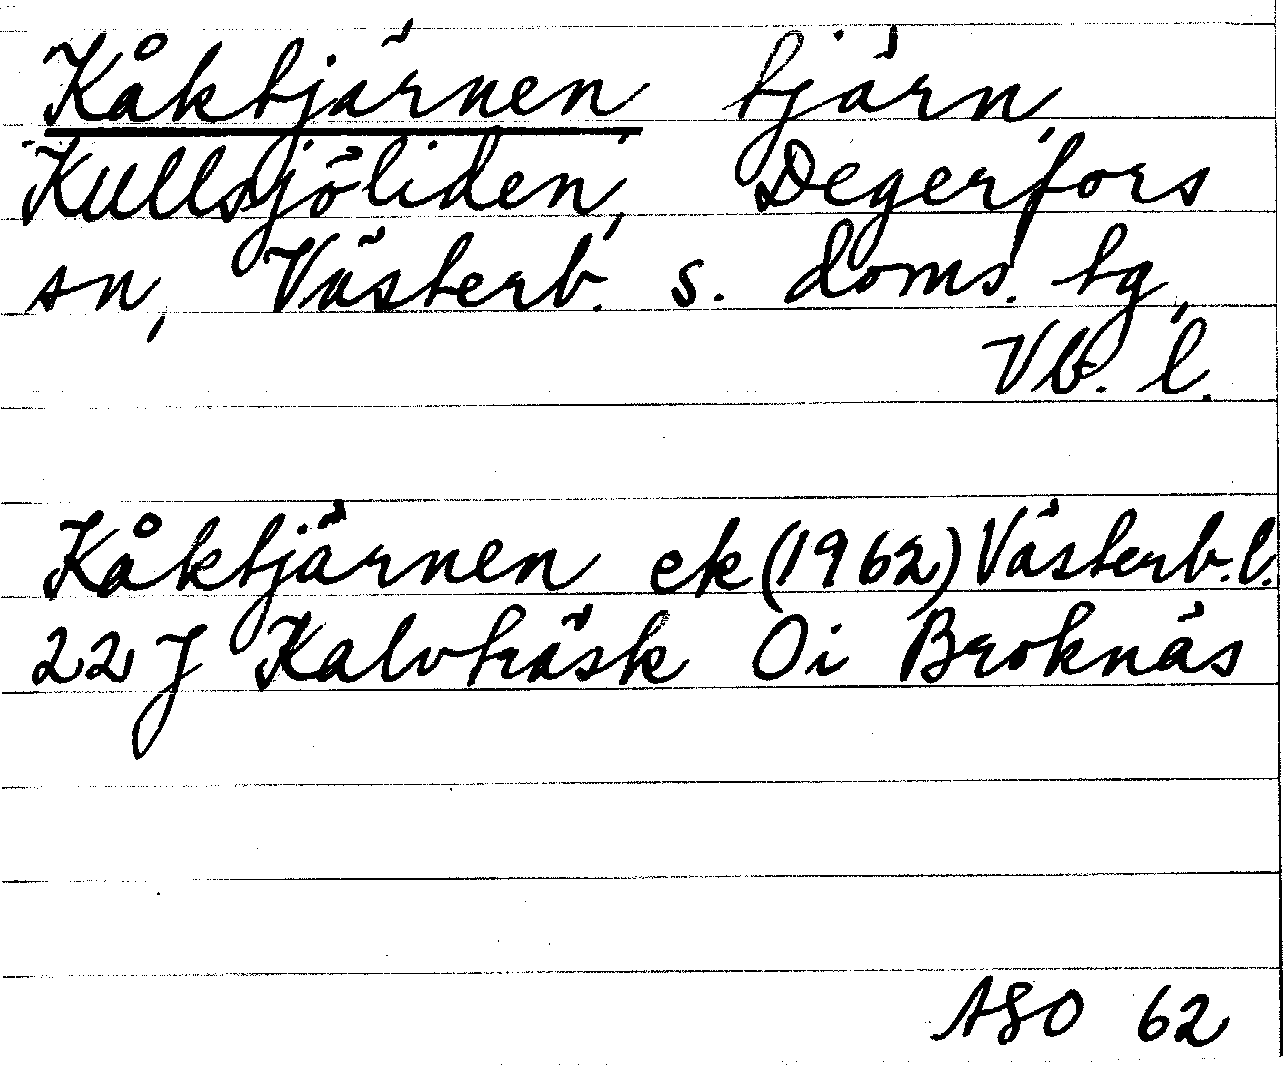 Kåktjärnen tjärn,
Kullsjöliden, Degerfors
sn, Västerb. s. doms. tg,
Vb. l.
Kåktjärnen ek (1962) Västerb. l.
22 J Kalvträsk Oi Broknäs
ASO 62